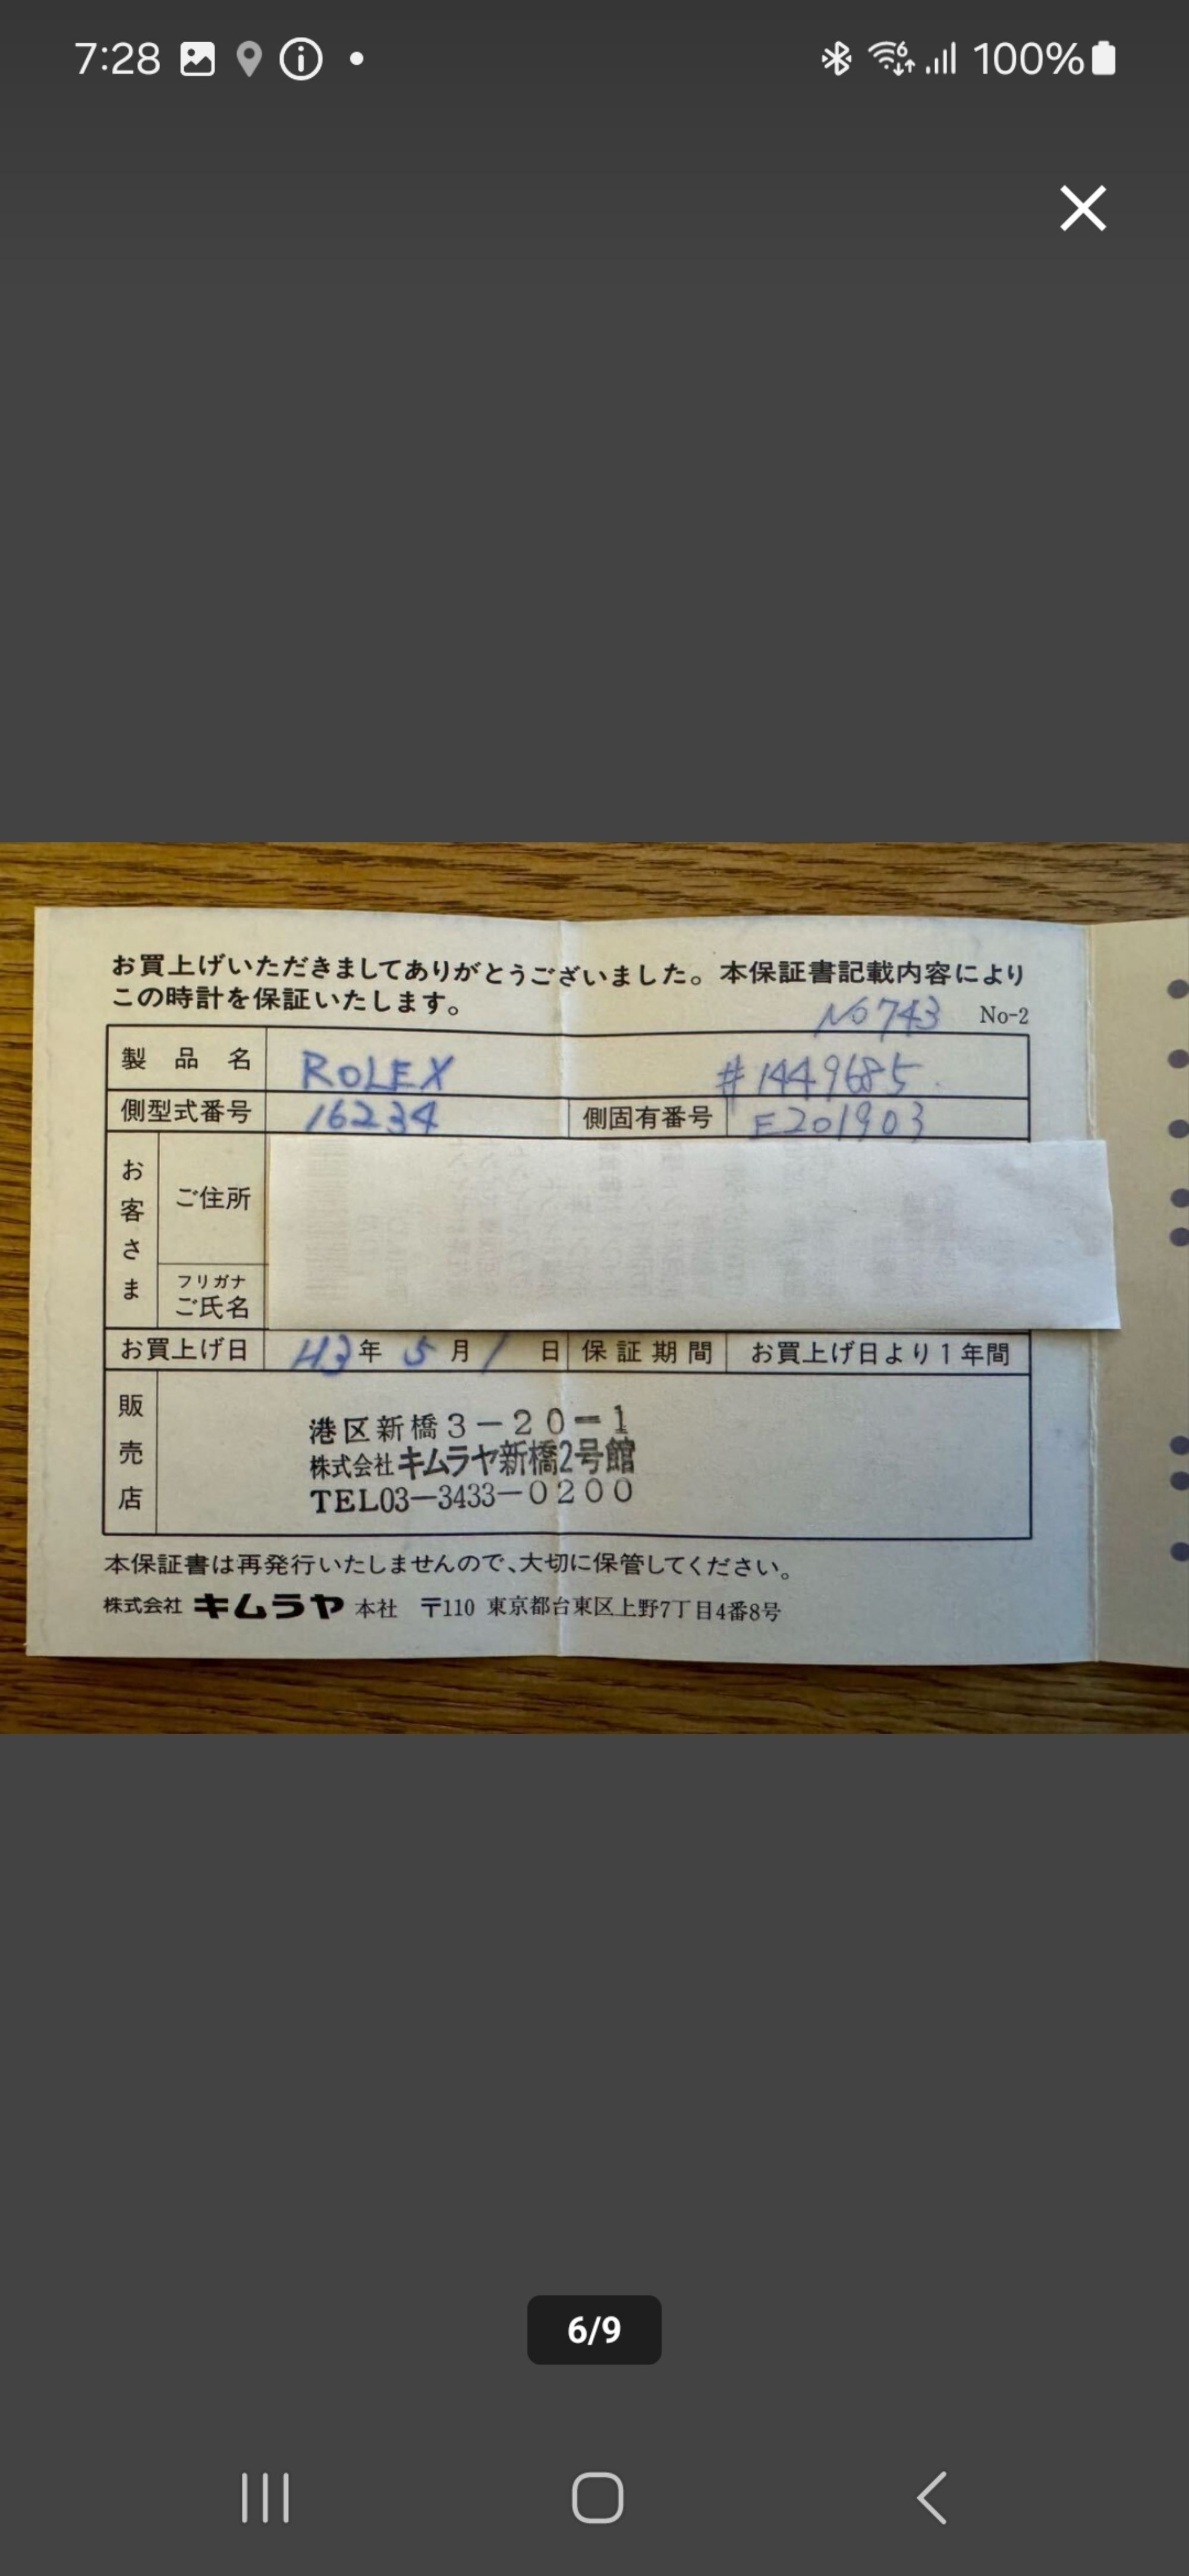 7:28 100%
お買上げいただきましてありがとうございました。本保証書記載内容により
この時計を保証いたします。
No 743 No-2
製品名 ROLEX #1449685
側型式番号 16234 側固有番号 E201903
お客さま
ご住所
フリガナ
ご氏名
お買上げ日 H3年 5月 1日 保証期間 お買上げ日より1年間
販売店
港区新橋3-20-1
株式会社キムラヤ新橋2号館
TEL03-3433-0200
本保証書は再発行いたしませんので、大切に保管してください。
株式会社 キムラヤ 本社 〒110 東京都台東区上野7丁目4番8号
6/9